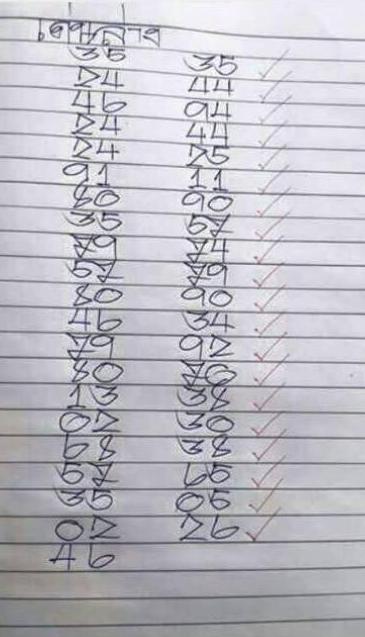 35 35
24 44
46 94
24 44
24 25
91 11
80 90
35 57
79 74
57 79
80 90
46 34
79 92
80 76
13 38
02 30
68 38
57 65
35 05
02 26
46